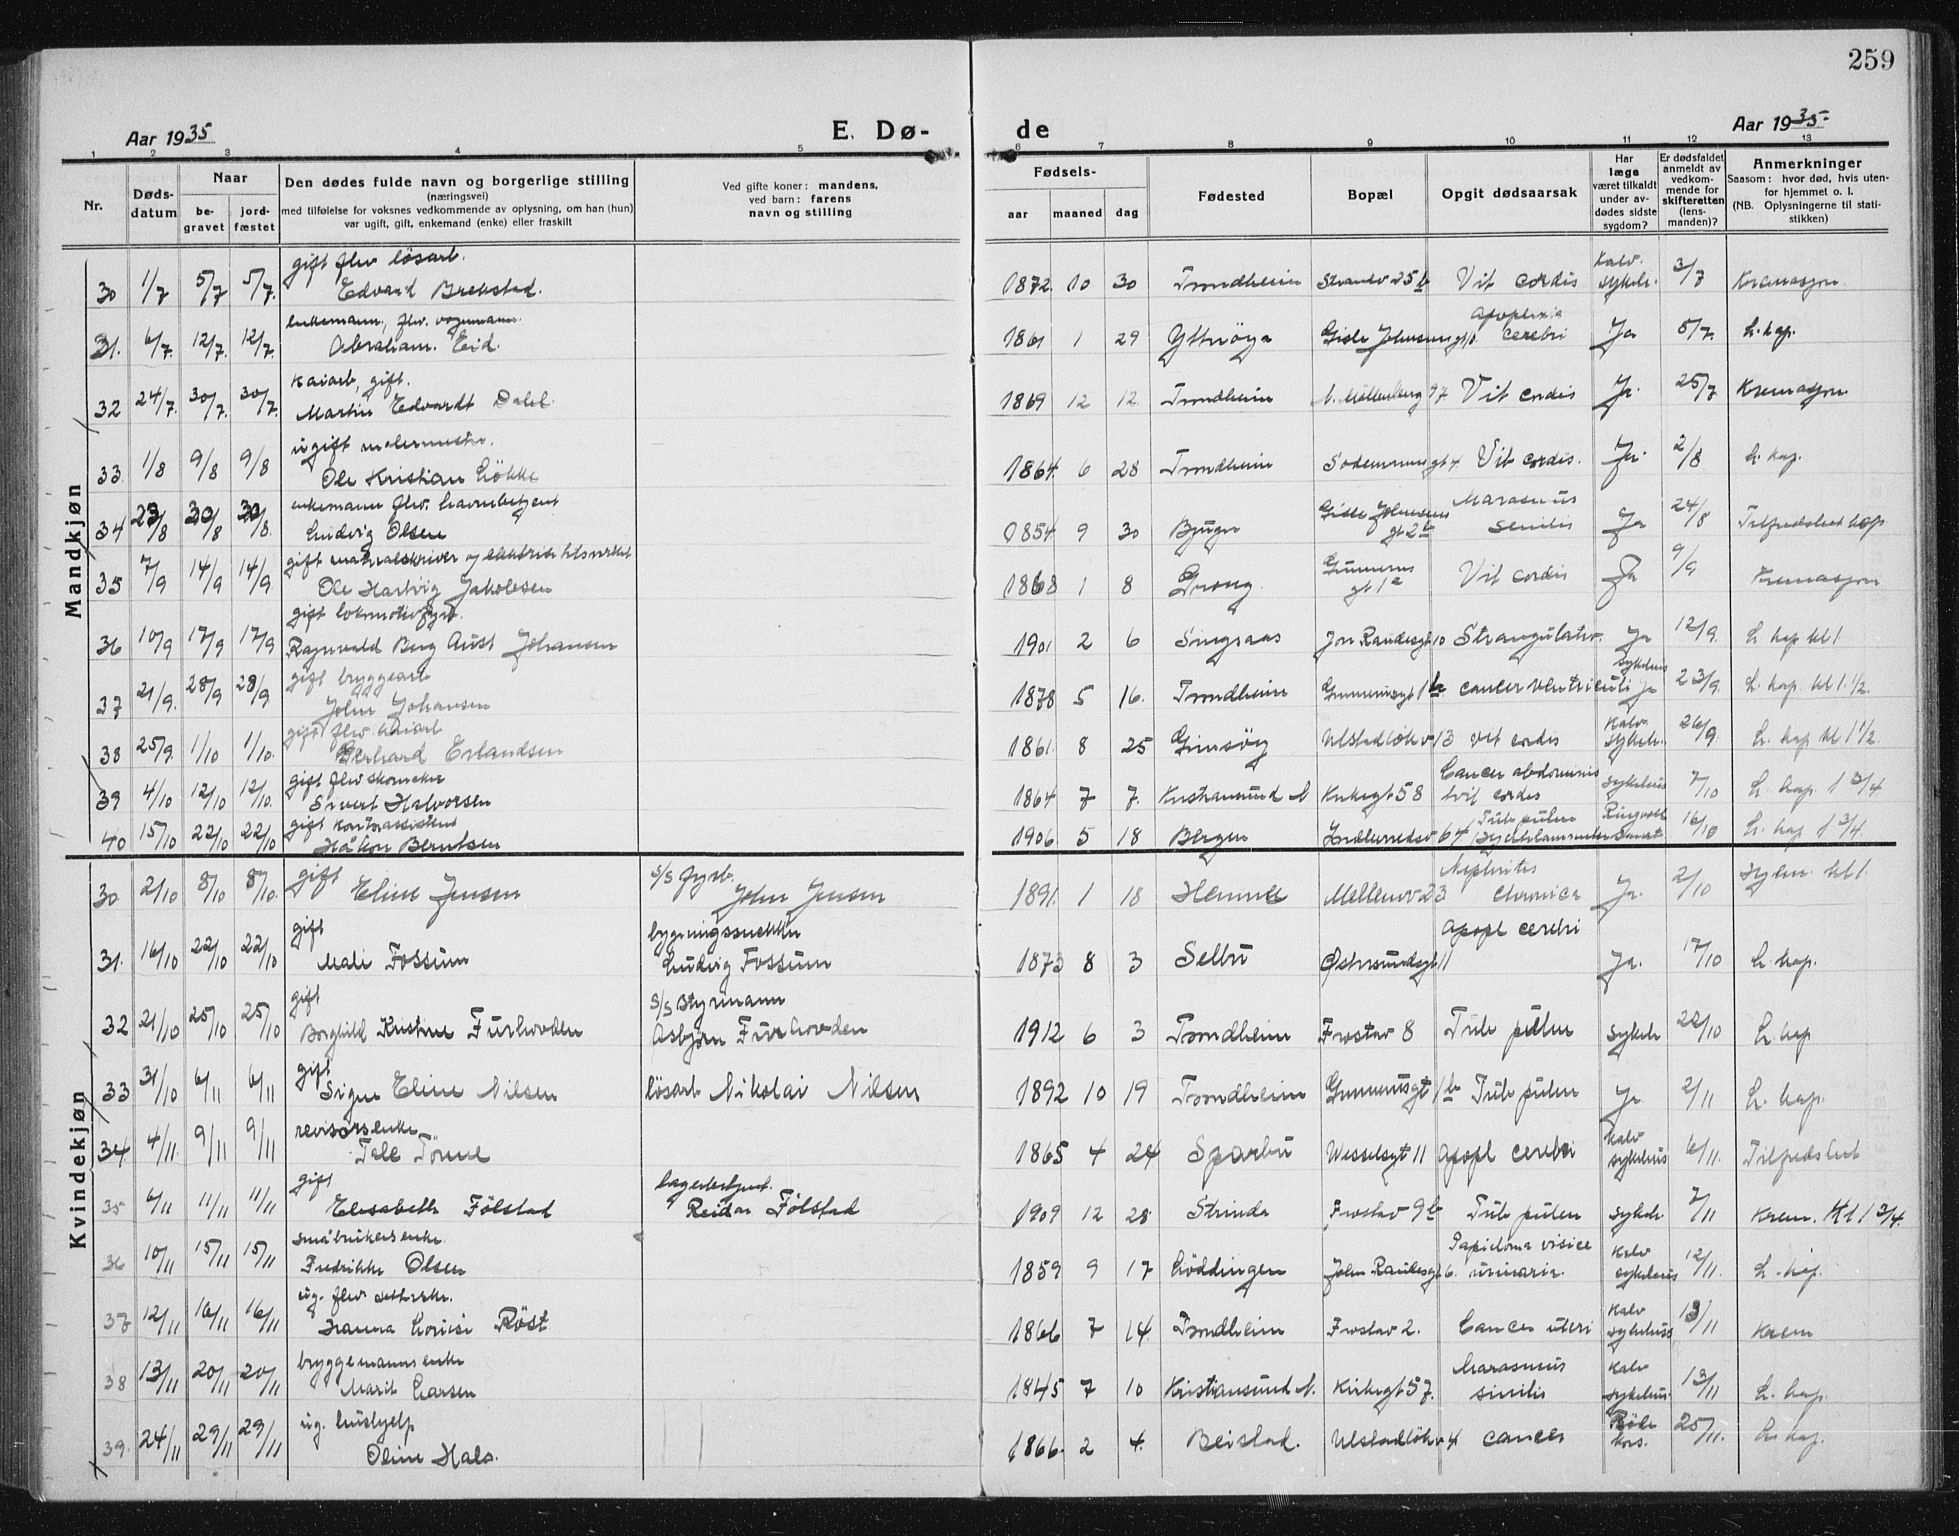 259
Aar 1935
E. Dø-
de
Aar 1935
1 2 3 4 5 6 7 8 9 10 11 12 13
Nr.
Døds-
datum
Naar
be-
gravet
jord-
fæstet
Den dødes fulde navn og borgerlige stilling
(næringsvei)
med tilføielse for voksnes vedkommende av oplysning, om han (hun)
var ugift, gift, enkemand (enke) eller fraskilt
Ved gifte koner: mandens,
ved barn: farens
navn og stilling
Fødsels-
aar maaned dag
Fødested
Bopæl
Opgit dødsaarsak
Har
læge
været tilkaldt
under av-
dødes sidste
sygdom?
Er dødsfaldet
anmeldt av
vedkom-
mende for
skifteretten
(lens-
manden)?
Anmerkninger
Saasom: hvor død, hvis uten-
for hjemmet o. l.
(NB. Oplysningerne til stati-
stikken)
Mandkjøn
gift flv løsarb.
30 1/7 5/7 5/7 Edvard Brekstad. 1872 10 30 Trondheim Strandv 25b Vit cordis Kalv. sykeh. 3/7 Kremasjon
enkemann, flv. vognmann
31. 6/7 12/7 12/7 Abraham Eid 1861 1 29 Ytterøya Gisle Johnsonsgt Apoplexia cerebri Ja 5/7 L. kap.
Kaiarb, gift.
32 24/7 30/7 30/7 Martin Edvardt Dahl 1869 12 12 Trondheim N. Møllenberg 97 Vit cordis Ja 25/7 Kremasjon
ugift malermester.
33 1/8 9/8 9/8 Ole Kristian Løkke 1864 6 28 Trondheim gt 4 Vit cordis. Ja. 2/8 L. kap.
enkemann flv. havnebetjent
34 23/8 30/8 30/8 Ludvig Olsen 1854 9 30 Bjugn Gisle Johnsons gt 2b Marasmus senilis Ja 24/8 Tilfredshet kap
gift materialskriver
35 7/9 14/9 14/9 Ole Hartvig Jakobsen 1868 1 8 Grong Gunnerus gt 1a Vit cordis Ja 9/9 Kremasjon
gift lokomotivfyrb.
36 10/9 17/9 17/9 Ragnvald Berg Aust Johansen 1901 2 6 Singsaas Jon Raudesgt 10 Strangulatio Ja 12/9 L. kap kl 1
gift bryggearb
37 21/9 28/9 28/9 John Johansen 1878 5 16. Trondheim Gunnerusgt 1b cancer ventriculi sykehus Ja 23/9 L. kap. kl 1. 1/2
gift flv. kaiarb
38 25/9 1/10 1/10 Gerhard Erlandsen 1861 8 25 Gimsøy Ulstadløkv 13 Vit cordis Kalv sykeh. 26/9 L. kap kl 1 1/2
gift flv skomaker
39 4/10 12/10 12/10 Sivert Halvorsen 1864 7 7. Kristiansund N Kirkegt 58 Cancer abdominis + vit cordis sykehus 7/10 L. kap 1 3/4
gift kontorassistent
40 15/10 22/10 22/10 Håkon Berntsen 1906 5 18 Bergen 64 Tub pulm Ringvoll 16/10 L. kap 1 3/4
Kvindekjøn
gift s/s fyrb.
30 2/10 8/10 8/10. Eline Jensen John Jensen 1891 1 18 Hemne Mellemv 23 Nephritis chronica Ja. 2/10 sykeh. kl 1.
gift bygningssnekker
31. 16/10 22/10 22/10 Mali Fossum Ludvig Fossum 1873 8 3 Selbu Østersundsgt 11 Apopl cerebri Ja. 17/10 L. kap.
gift s/s styrmann
32 21/10 25/10 25/10 Borghild Kristine Furhovden Asbjørn Furhovden 1912 6 3 Trondheim Frostav 8 Tub pulm sykeh 22/10 L. kap
gift
33 31/10 6/11 6/11 Signe Eline Nilsen løsarb Nikolai Nilsen 1892 10 19 Trondheim Gunnerusgt 1b Tub pulm Ja 2/11 L. kap.
revisorsenke
34 4/11 9/11 9/11 Tale Tønne 1865 4 24 Sparbu Wesselsgt 11 Apopl cerebri Kalv sykehus 6/11. Tilfredshet
gift lagerbetjent.
35 6/11 11/11 11/11 Elisabeth Følstad Reidar Følstad 1909 12 28 Strinda Frostav 9b Tub pulm sykeh 7/11 Krem. Kl 1 3/4.
småbrukersenke
36 10/11 15/11 15/11 Fredrikke Olsen 1859 9 17 Løddingen John Raudesgt 6. Papiloma visice urinaria Kalv sykehus 12/11. L. kap.
ug. flv
37 12/11 16/11 16/11 Hanna Lovise Røst 1866 7 14 Trondheim Frostav 2. Cancer uteri Kalv sykehus 13/11 Krem
bryggemannsenke
38 13/11 20/11 20/11 Marit Larsen 1845 7 10 Kristiansund N. Kirkegt 57. Marasmus sinilis Kalv sykehus. 13/11 L. kap.
ug. hushjelp
39. 24/11 29/11 29/11 Oline Hals. 1866 2 4. Beistad. Ulstadløkv 4 cancer Røde kors. 25/11. L. kap.